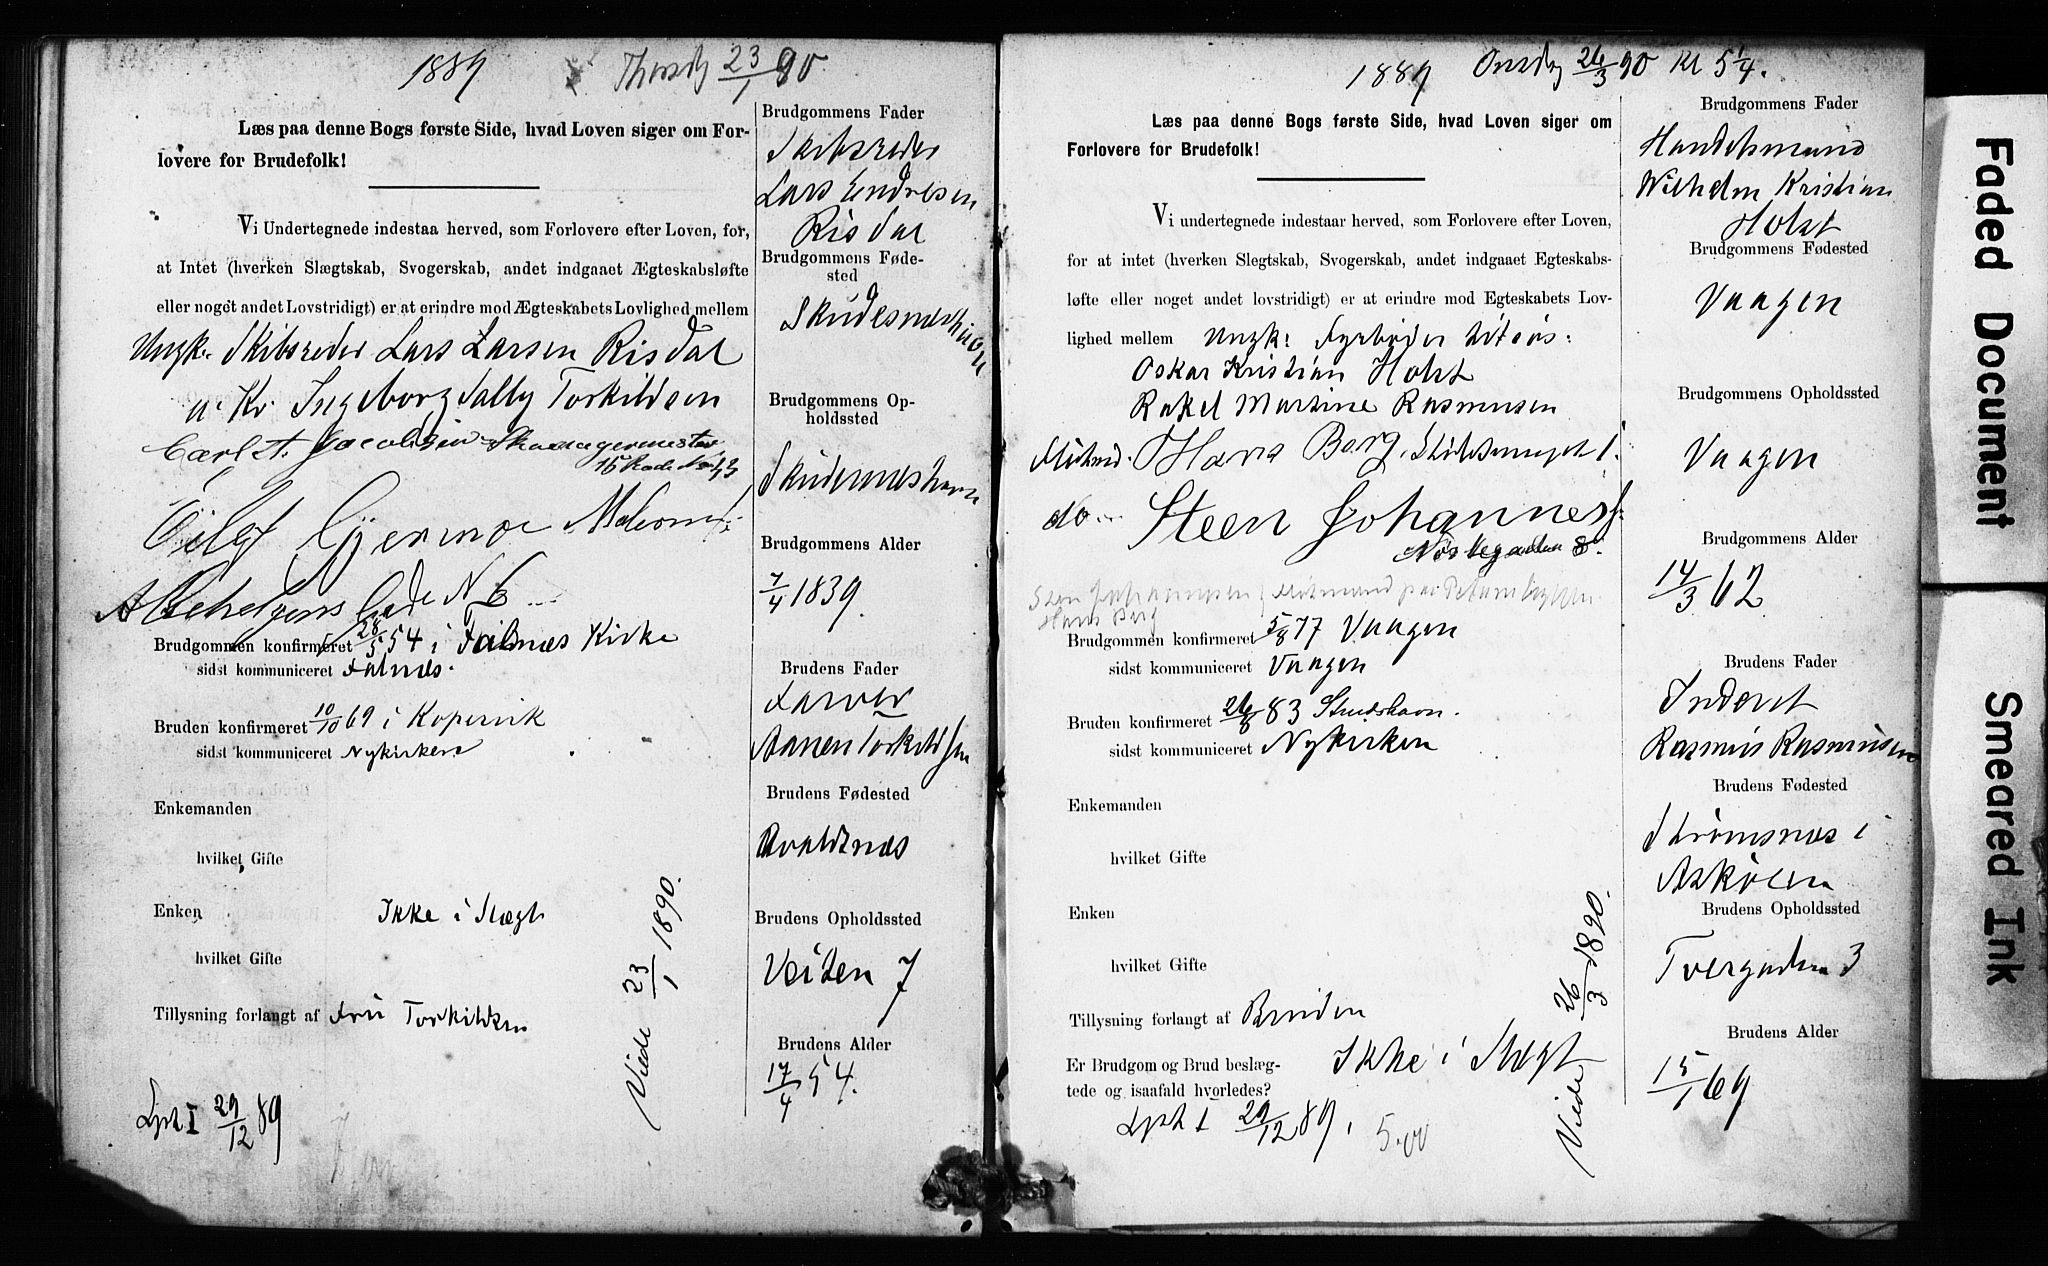 1889 Thorsdg 23/1 90
Læs paa denne Bogs første Side, hvad Loven siger om For-
lovere for Brudefolk!
Vi Undertegnede indestaa herved, som Forlovere efter Loven, for,
at Intet (hverken Slægtskab, Svogerskab, andet indgaaet Ægteskabsløfte
eller noget andet Lovstridigt) er at erindre mod Ægteskabets Lovlighed mellem
Ungk. Skibsreder Lars Larsen Risdal
Ingeborg Sally Torkildsen
Carl A. Jacobsen Skomagermester
Eilef Gjermoe
No 6
Brudgommen konfirmeret 28/5 54 i Falnæs Kirke
sidst kommuniceret Falnæs.
Bruden konfirmeret 10/10 69 i Kopervik
sidst kommuniceret Nykirken
Enkemanden
hvilket Gifte
Enken Ikke i Slægt
hvilket Gifte
Tillysning forlangt af Fru Torkildsen
Viede 23/1 1890.
Lyst I 29/12 89
Brudgommens Fader
Skibsreder
Lars Endresen
Risdal
Brudgommens Føde-
sted
Skudesneshavn
Brudgommens Op-
holdssted
Skudesneshavn
Brudgommens Alder
7/4 1839.
Brudens Fader
Farver
Aanen Torkildsen
Brudens Fødested
Avaldsnæs
Brudens Opholdssted
Veiten 7
Brudens Alder
17/4 54.
1889 Onsdag 26/3 90 Kl 5 1/4.
Læs paa denne Bogs første Side, hvad Loven siger om
Forlovere for Brudefolk!
Vi undertegnede indestaar herved, som Forlovere efter Loven,
for at intet (hverken Slegtskab, Svogerskab, andet indgaaet Egteskabs-
løfte eller noget andet lovstridigt) er at erindre mod Egteskabets Lov-
lighed mellem Ungk: Fyrbøder
Oskar Kristian Holst
Rakel Martine Rasmussen
Hans Berg,
do Steen Johanness
Nøstegaden 8.
Steen Johannessen
Hans Berg
Brudgommen konfirmeret 5/8 77 Vaagen
sidst kommuniceret Vaagen
Bruden konfirmeret 26/8 83 Strudshavn.
sidst kommuniceret Nykirken
Enkemanden
hvilket Gifte
Enken
hvilket Gifte
Tillysning forlangt af Bruden
Er Brudgom og Brud beslæg-
tede og isaafald hvorledes? Ikke i Slægt
Viede 26/3 1890.
Lyst I 29/12 89. 5.00
Brudgommens Fader
Handelsmand
Wilhelm Kristian
Holst
Brudgommens Fødested
Vaagen
Brudgommens Opholdssted
Vaagen
Brudgommens Alder
14/3 62
Brudens Fader
Inderst
Rasmus Rasmussen
Brudens Fødested
Strømsnæs i
Askøen
Brudens Opholdssted
Tvergaden 3
Brudens Alder
15/1 69
Faded Document
Smeared Ink